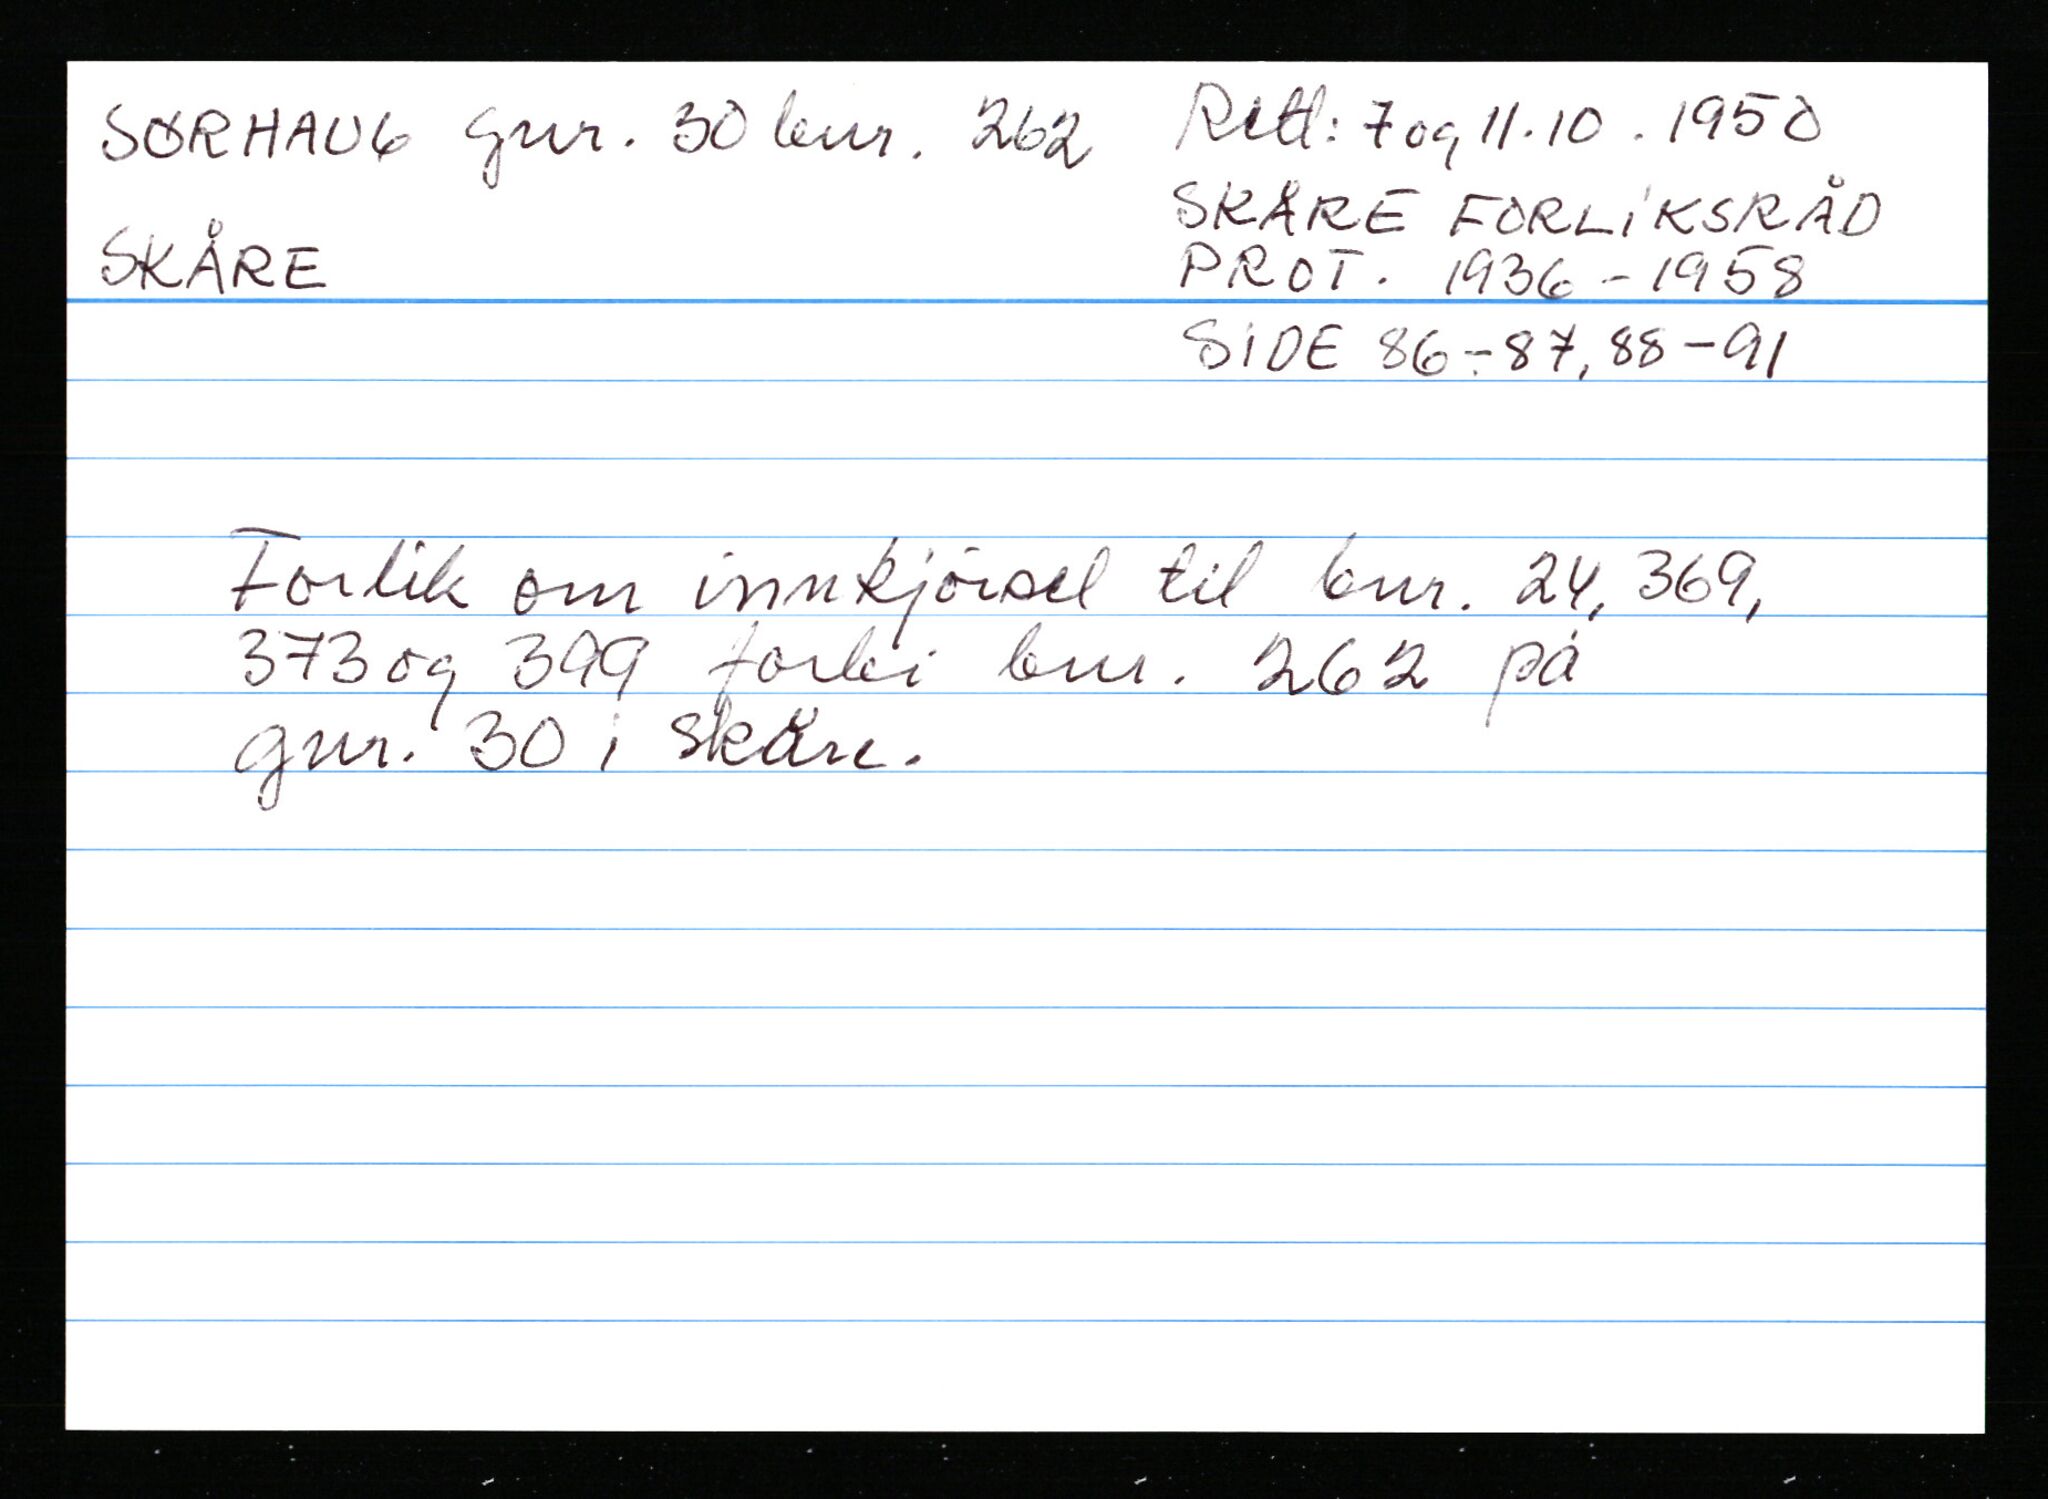 SØRHAUG gnr. 30 bnr. 262
SKÅRE
Rettl: 7 og 11.10.1950
SKÅRE FORLIKSRÅD
PROT. 1936-1958
SIDE 86-87, 88-91
Forlik om innkjörsel til bnr. 24, 369,
373 og 399 forbi bnr. 262 på
gnr. 30 i Skåre.